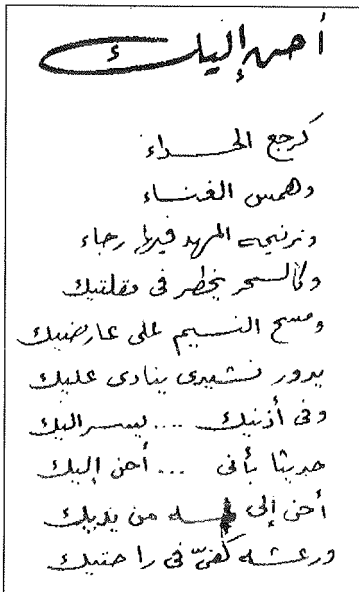 أحن إليك
كرجع الحداء
وهمس الغناء
وترنيمه المهد فيها رجاء
وكالسحر يخطر فى مقلتيك
ومسح النسيم على عارضيك
يدور نشيدى ينادى عليك
وفى أذنيك .... ليسر إليك
حديثا بأنى ... أحن إليك
أحن إلى لمسه من يديك
ورعشه كفىّ فى راحتيك